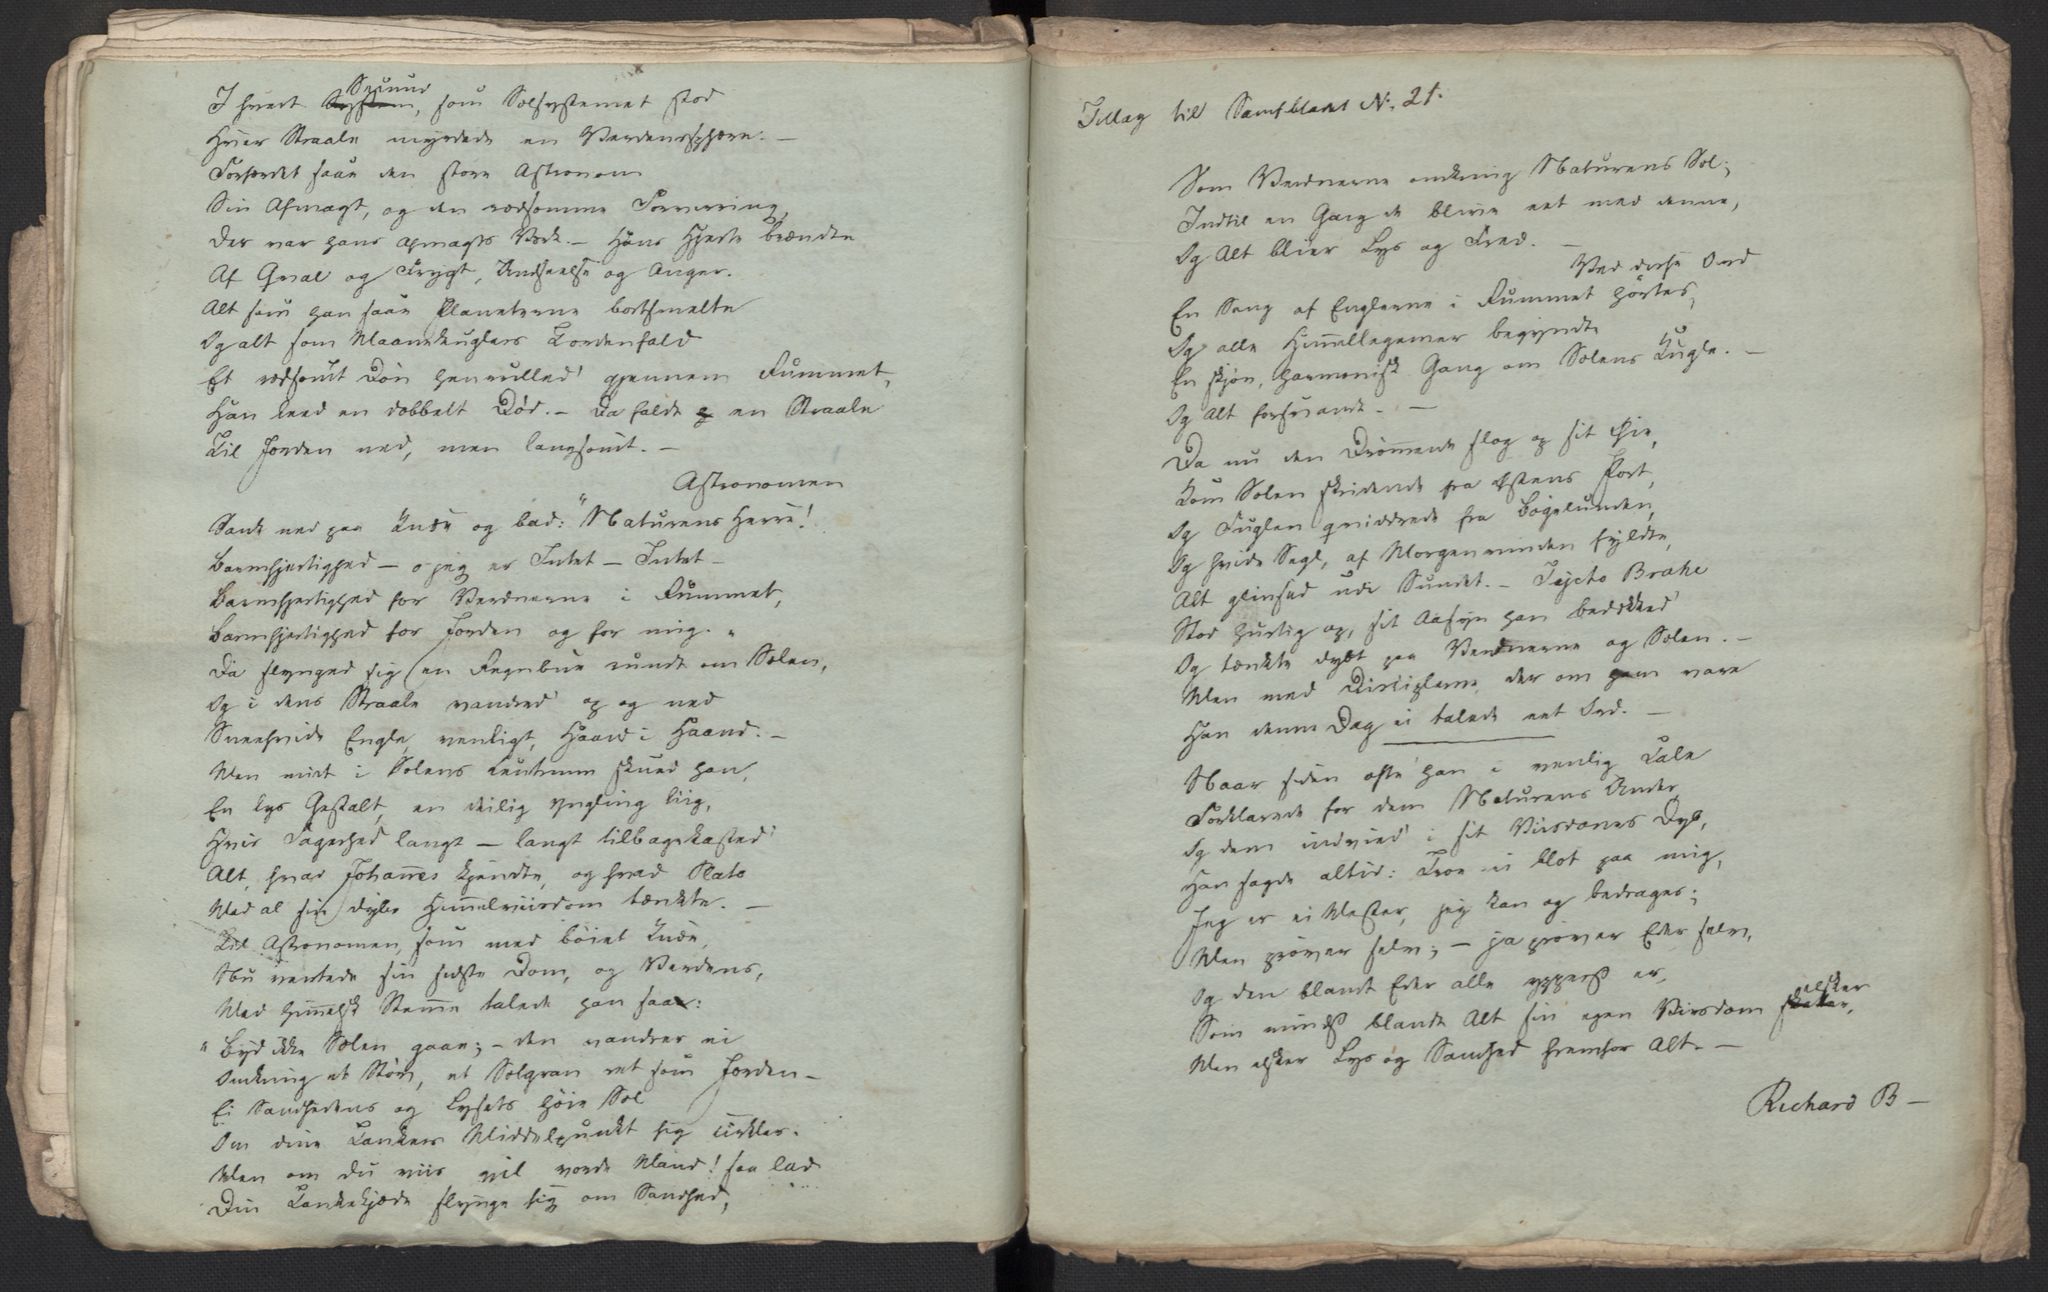 I hvert Secund, som Solsystemet stod
Hver Straale myrdede en Verdenssphære. —
Forfærdet saae den store Astronom
Sin Afmagt, og den rædsomme Forvirring,
Der var hans Afmagts Værk. — Hans Hjerte brændte
Af Qval og Frygt, Undseelse og Anger.
Alt som han saae Planeterne bortsmelte
Og alt som Maanekuglers Tordenfald
Et rædsomt Døn henrulled' gjennem Rummet,
Han leed en dobbelt Død. — Da faldt en Straale
Til Jorden ned, men langsomt. —
Astronomen
Sank ned paa Knæe og bad: "Naturens Herre!
Barmhjertighed — o jeg er Intet — Intet —
Barmhjertighed for Verdnerne i Rummet,
Barmhjertighed for Jorden og for mig. "
Da slynged sig en Regnbue rundt om Solen,
Og i dens Straale vandred' op og ned
Sneehvide Engle, venligt, Haand i Haand. —
Men midt i Solens Centrum skued han,
En lys Gestalt, en deilig Yngling liig,
Hvis Fagerhed langt — langt tilbagekasted'
Alt, hvad Johannes kjendte, og hvad Plato
Med al sin dybe Himmelviisdom tænkte. —
Til Astronomen, som med bøiet Knæe,
Nu ventede sin sidste Dom, og Verdens,
Med himmelsk Stemme talede han saa:
"Byd ikke Solen gaae; — den vandrer ei
Omkring et Støv, et Solgran ret som Jorden —
Ei Sandhedens og Lysets høie Sol
Om dine Tankers Middelpunkt sig cirkler.
Men om du viis vil vorde Mand! saa lad
Din Tankekjæde slynge sig om Sandhed,
Tillæg til Samfbladet N. 21.
Som Verdnerne omkring Naturens Sol;
Indtil en Gang de blive eet med denne,
Og Alt bliver Lys og Fred. —
Ved disse Ord
En Sang af Englerne i Rummet hørtes,
Og alle Himmellegemer begyndte
En skjøn, harmonisk Gang om Solens Kugle. —
Og Alt forsvandt. —
Da nu den Drømmende slog op sit Øie,
Kom Solen skridende fra Østens Port,
Og Fuglen qviddrede fra Bøgelunden,
Og hvide Segl, af Morgenvinden fyldte,
Alt glindsed ude i Sundet. — Tycho Brahe
Stod hurtig op, sit Aasyn han bedækked'
Og tænkte dybt paa Verdnerne og Solen. —
Men med Disciplene, der om ham vare
Han denne Dag ei talede eet Ord. —
Naar siden ofte han i venlig Tale
Forklarede for dem Naturens Under
Og dem indvied' i sit Viisdoms Dyb,
Han sagde altid: Troe ei blot paa mig,
Jeg er ei Mester, jeg kan og bedrages;
Men prøver selv; — ja prøver Eder selv,
Og den blandt Eder alle ypperst er,
Som mindst blandt Alt sin egen Viisdom elsker
Men elsker Lys og Sandhed fremfor Alt. —
Richard B —